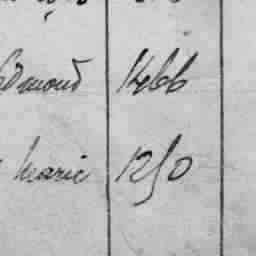 Edmond 1466
Marie 1250